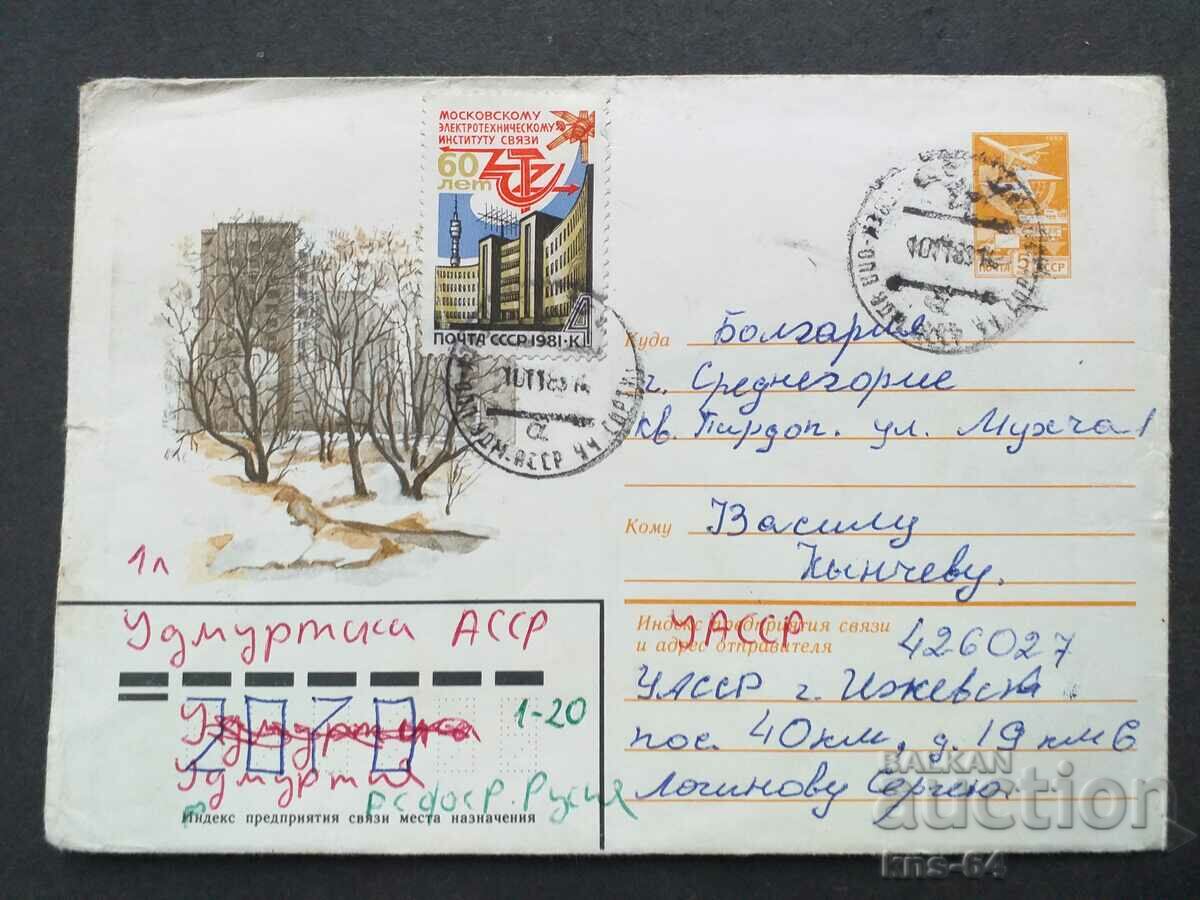 МОСКОВСКОМУ
ЭЛЕКТРОТЕХНИЧЕСКОМУ
ИНСТИТУТУ СВЯЗИ
60
лет
ПОЧТА СССР·1981·К4
ПОЧТА 5 СССР
Куда Болгария
г. Среднегорие
кв. Пирдоп. ул. Мухча 1
Кому Василу
Кынчеву.
1л
Удмуртска АССР
УАССР
Индекс предприятия связи
и адрес отправителя
426027
УАССР г. Ижевск
пос. 40 км, д. 19 км 6
Логинову Сергею
2070
1-20
Удмуртия
РСФСР. Русия
Индекс предприятия связи места назначения
BALKAN
auction
kns-64